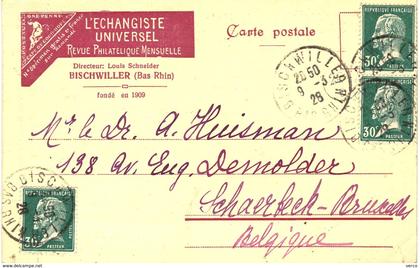 L'ECHANGISTE
UNIVERSEL
REVUE PHILATELIQUE MENSUELLE
Directeur: Louis Schneider
BISCHWILLER (Bas Rhin)
fondé en 1909
Carte postale
BISCHWILLER
20 50
9 - 3
28
REPUBLIQUE FRANÇAISE
30c
PASTEUR
30c
PASTEUR
Mr. le Dr. A. Huisman
138 Av. Eug. Demolder
Schaerbeek-Bruxelles
Belgique
REPUBLIQUE FRANÇAISE
30c
PASTEUR